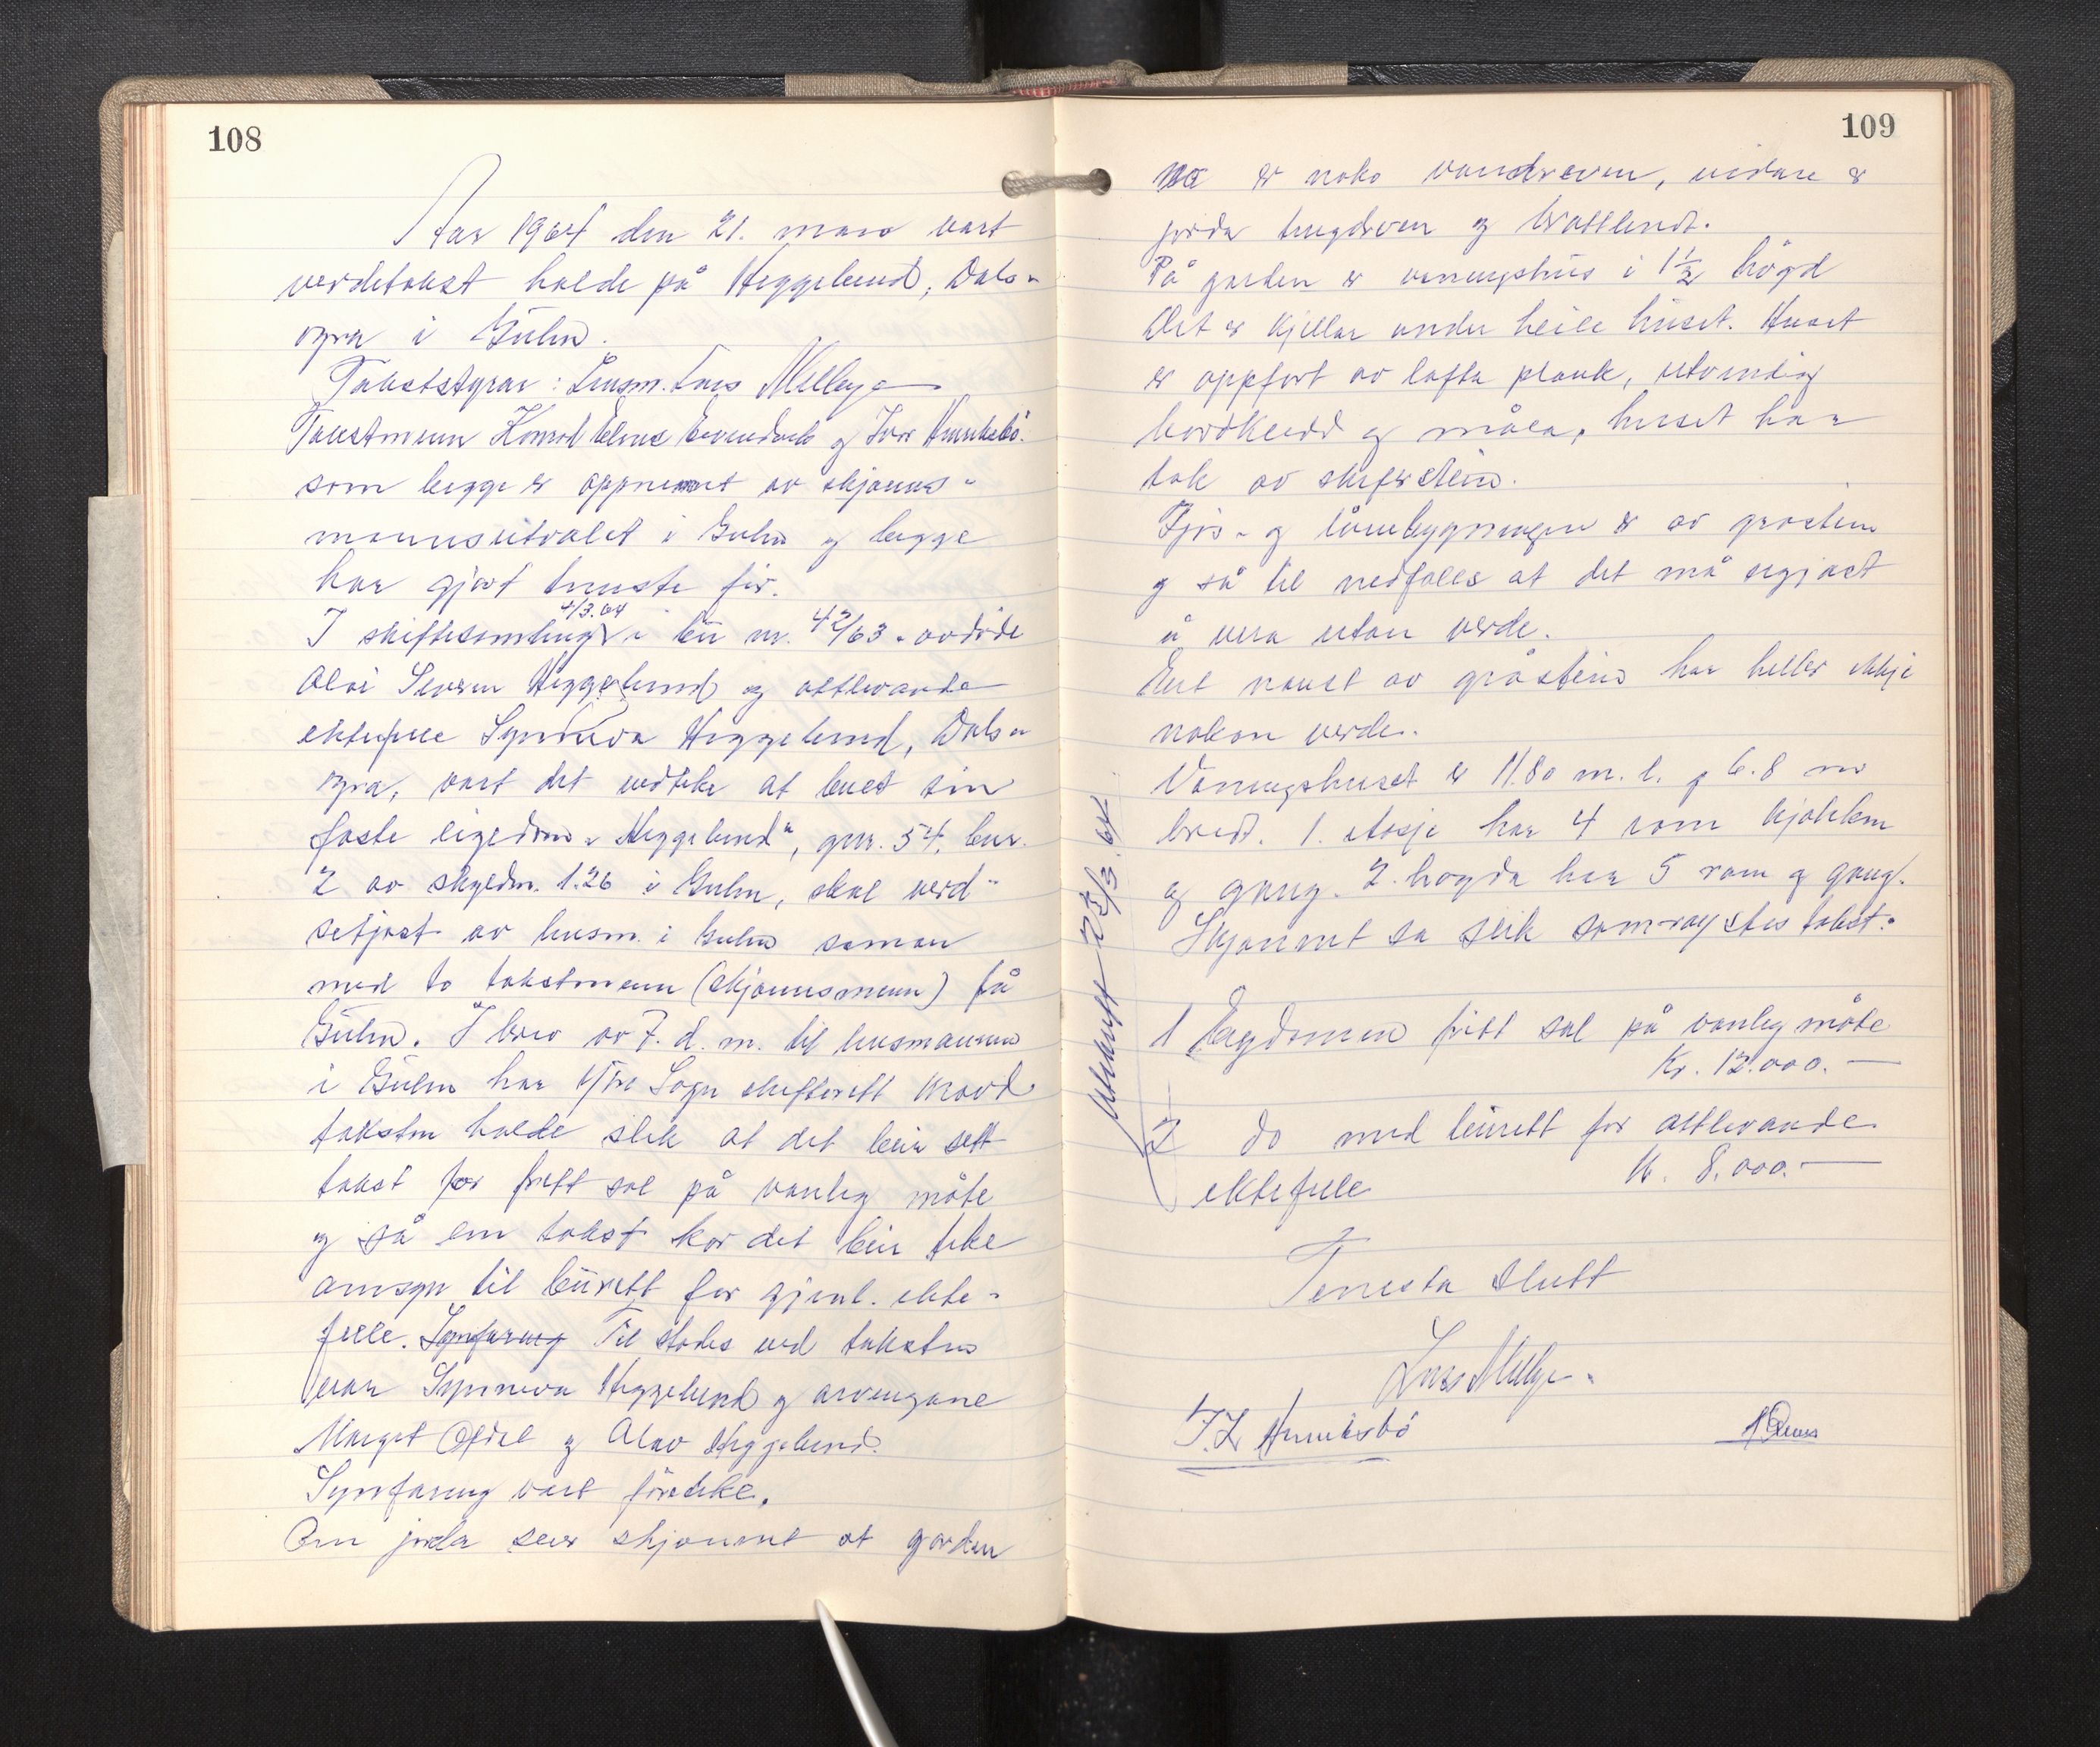 108
Aar 1964 den 21. mars vart
verdetakst halde på Heggelund, Dals-
øyra i Gulen.
Takststyrar: Lensm. Lars Mellbye
Takstmenn Konrad Eivindvik og Ivar Hunnkebø.
som begge er oppnemnt av skjønns-
mannsutvalet i Gulen og begge
har gjort teneste før.
I skiftesamling 4/3.64 i bu nr. 42/63 - avdøde
Olai Severin Heggelund og attlevande
ektefelle Synneva Heggelund, Dals-
øyra, vart det vedteke at buet sin
faste eigedom „Heggelund", gnr. 54, bnr.
2 av skyldm. 1.26 i Gulen, skal verd-
setjast av lensm. i Gulen saman
med to takstmenn (skjønnsmenn) frå
Gulen. I brev av 7. d. m. til lensmannen
i Gulen har Ytre Sogn skifterett kravd
taksten halde slik at det blir sett
takst for fritt sal på vanleg måte
og så ein takst kor det blir teke
omsyn til burett for gjenl. ekte-
felle. Synfaring Til stades ved taksten
var Synneva Heggelund og arvingane
Marget Opdal og Olav Heggelund.
Synfaring vart føreteke.
Om jorda seier skjønnet at garden
109
no er noko vandreven, vidare er
jorda tungdreven og brattlendt.
På garden er våningshus i 1 1/2 høgd
Det er kjellar under heile huset. Huset
er oppført av lafta plank, utvendig
bordkledd og måla, huset har
tak av skiferstein.
Fjøs- og løebygningen er av gråstein
og så til nedfalls at det må segjast
å vera utan verde.
Eit naust av gråstein har heller ikkje
nokon verde.
Våningshuset er 11.80 m. l. og 6.8 m
bredt. 1. etasje har 4 rom kjøkken
og gang. 2. høgda har 5 rom og gang.
Skjønnet sa slik samrøystes takst:
1 Eigdomen fritt sal på vanleg måte
Kr. 12.000.—
2 do med burett for attlevande
ektefelle Kr. 8.000.—
Utskrift 23/3.64
Tenesta slutt
Lars Mellbye.